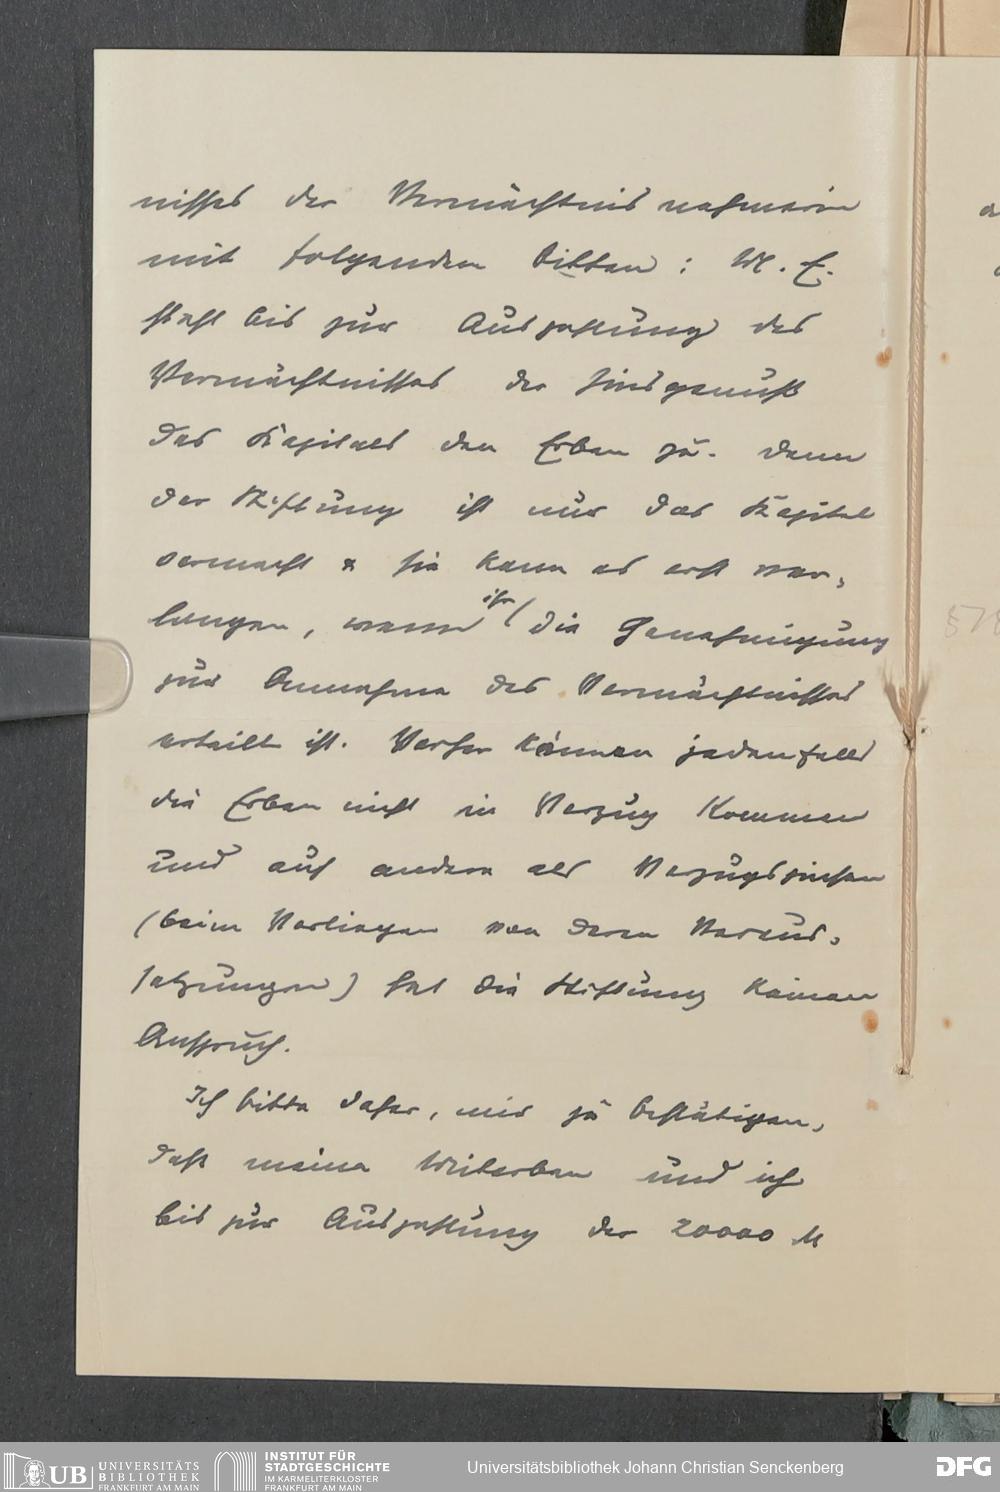 nisses der Vermächtnisnehmerin
mit folgenden Bitten: M. E.
steht bis zur Auszahlung des
Vermächtnisses der Zinsgenuß
des Kapitals den Erben zu. Denn
der Stiftung ist nur das Kapital
vermacht & sie kann es erst ver-
langen, wenn ihr die Genehmigung
zur Annahme des Vermächtnisses
erteilt ist. Vorher können jedenfalls
die Erben nicht in Verzug kommen
und auf andere als Verzugszinsen
(beim Vorliegen von deren Voraus-
setzungen) hat die Stiftung keinen
Anspruch.
Ich bitte daher, mir zu bestätigen,
daß meine Miterben und ich
bis zur Auszahlung der 20000 M
§78
UB UNIVERSITÄTS
BIBLIOTHEK
FRANKFURT AM MAIN
INSTITUT FÜR
STADTGESCHICHTE
IM KARMELITERKLOSTER
FRANKFURT AM MAIN
Universitätsbibliothek Johann Christian Senckenberg
DFG